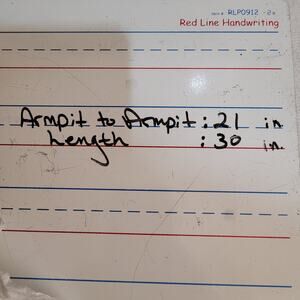 Item # RLP0912 - 2a
Red Line Handwriting
Armpit to Armpit : 21 in
Length : 30 in.